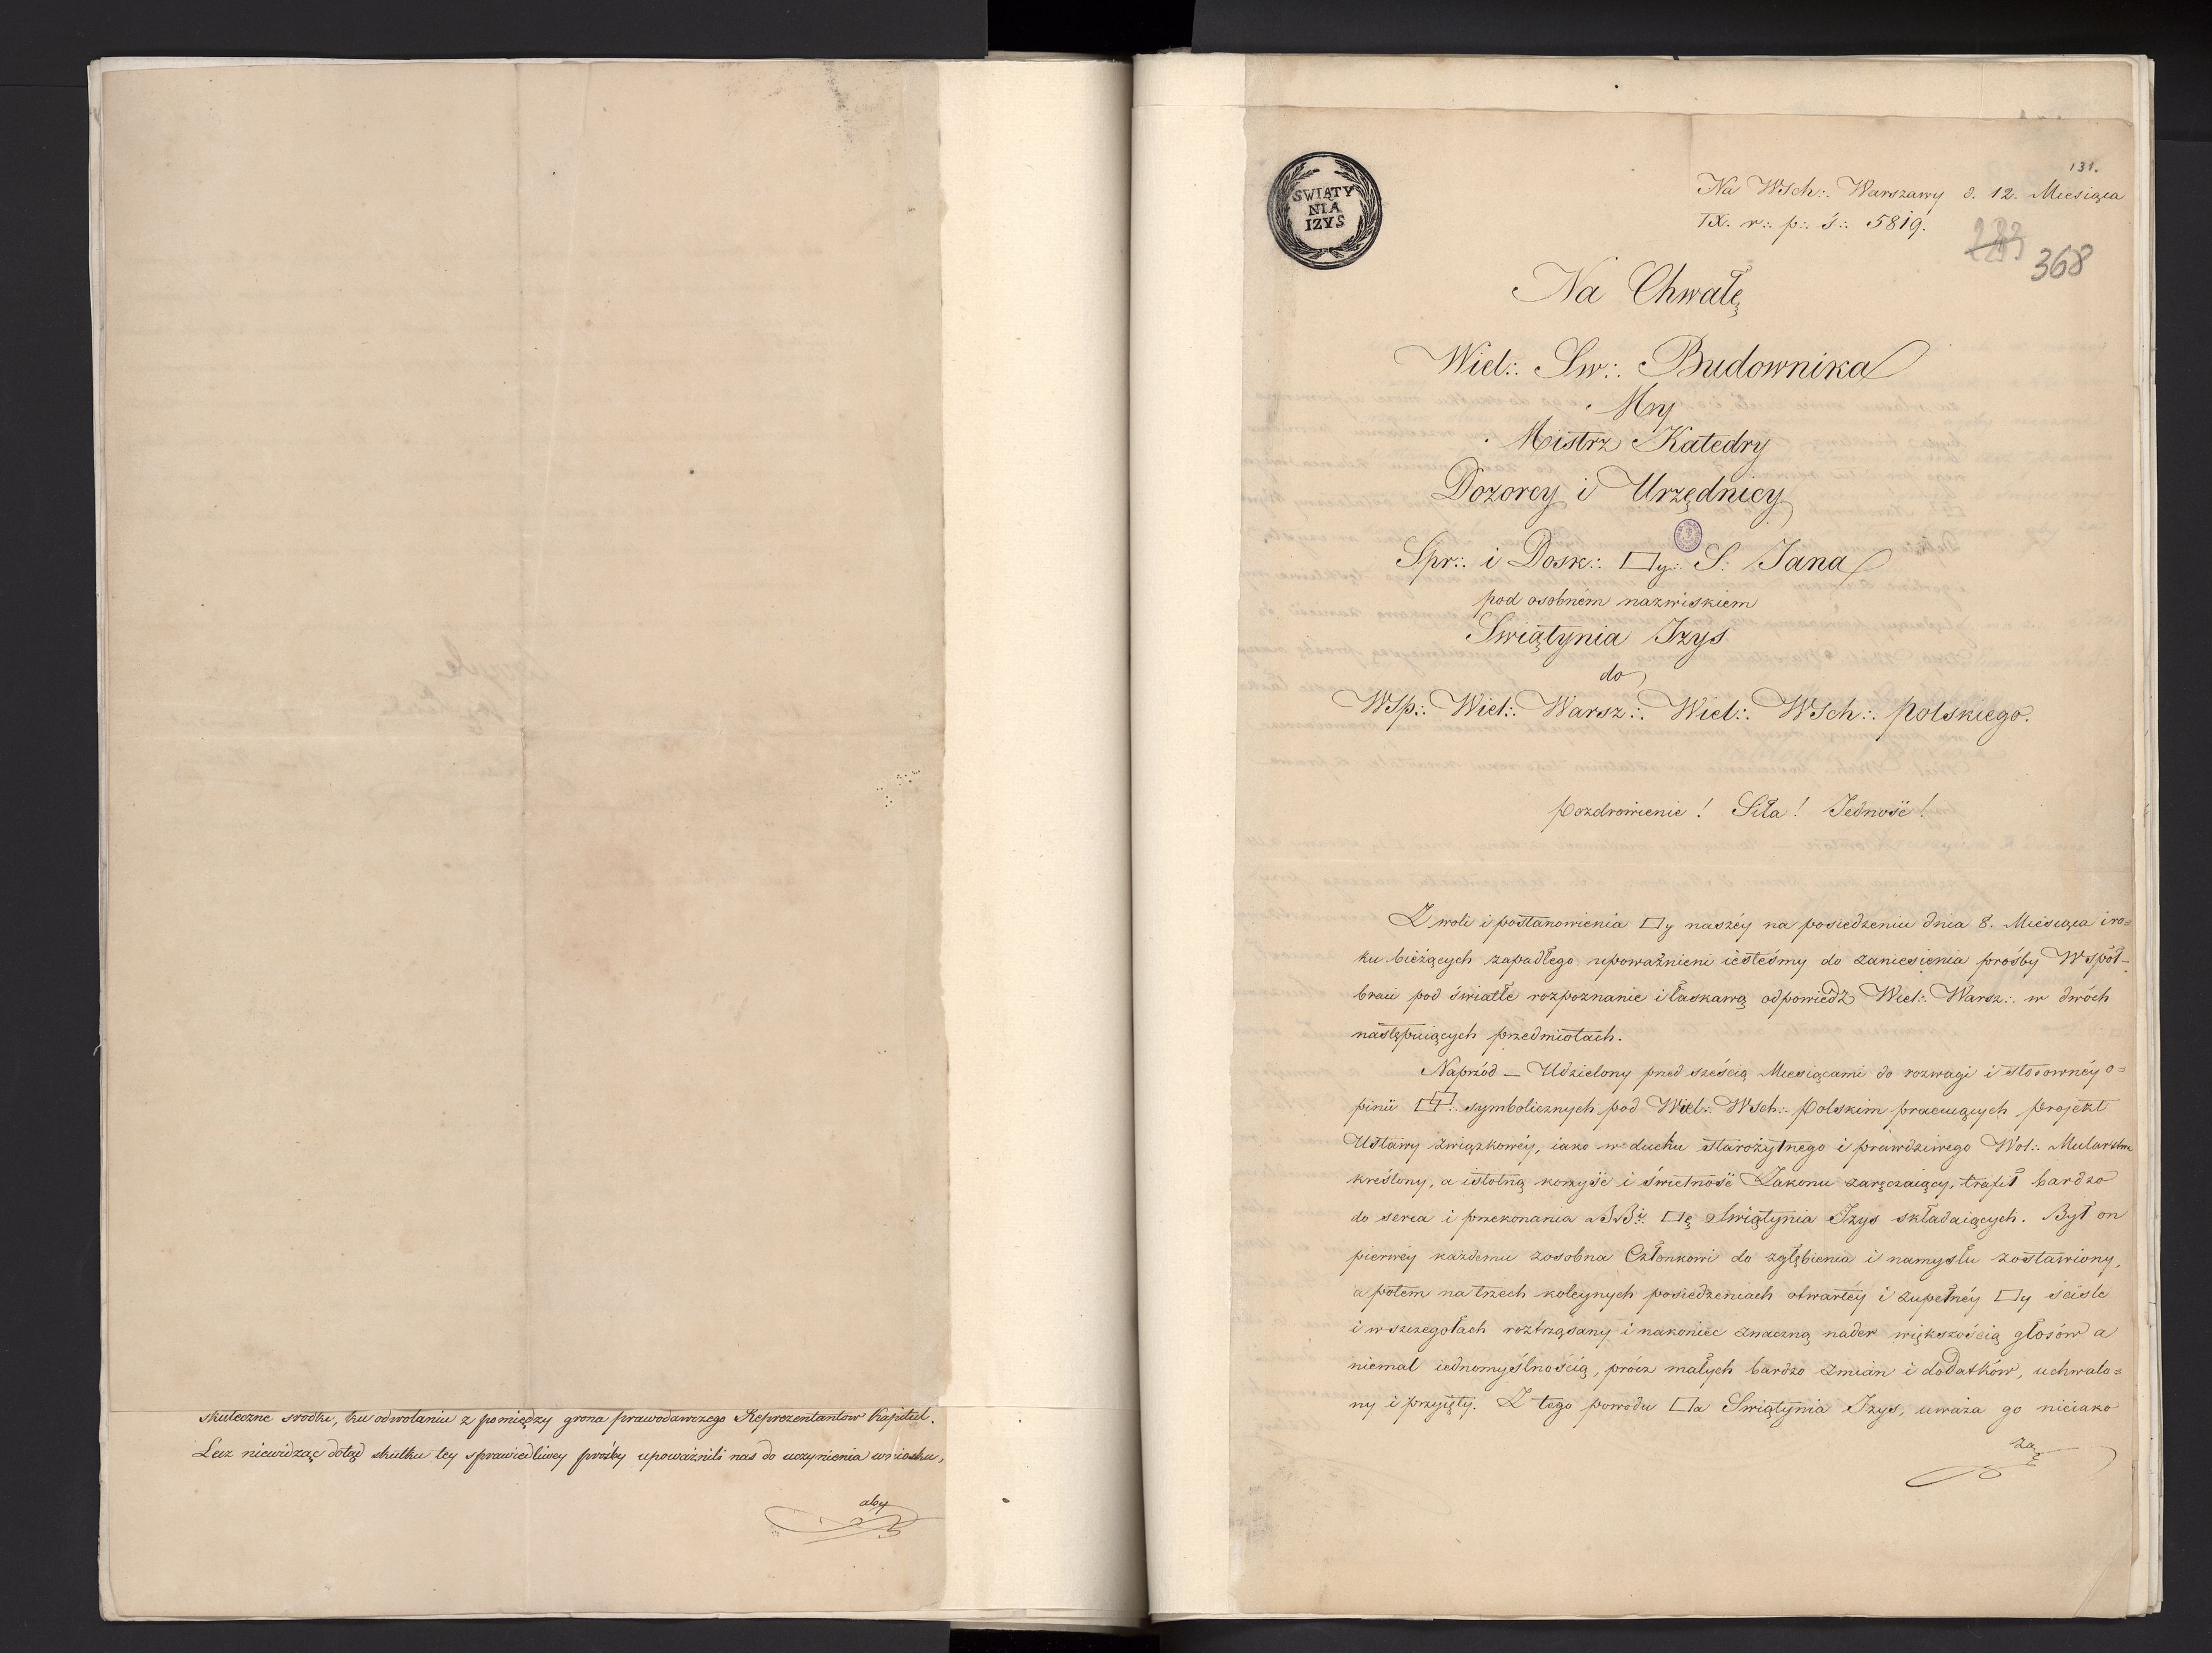 skuteczne srodki, ku odwołaniu z pomiędzy grona prawodawczego Reprezentantow Kapitul.
Lecz niewidząc dotąd skutku tey sprawiedliwey prośby upoważnili nas do uczynienia wniosku,
aby
SWIĄTY
NIA
IZYS
131.
Na WSch∴ Warszawy d. 12. Miesiąca
IX. r∴ p∴ ś∴ 5819.
283
368
Na Chwałę
Wiel∴ Sw∴ Budownika
My
Mistrz Katedry
Dozorcy i Urzędnicy
Spr∴ i Dosk∴ □y∴ S: Jana
pod osobném nazwiskiem
Swiątynia Izys
do
WSp∴ Wiel∴ Warsz∴ Wiel∴ WSch∴ polskiego.
Pozdrowienie! Siła! Jedność!
Z woli i postanowienia □y naszéy na posiedzeniu dnia 8. Miesiąca i ro=
ku bieżących zapadłego upoważnieni iesteśmy do zaniesienia prośby Współ-
braci pod światłe rozpoznanie i łaskawą odpowiedź Wiel∴ Warsz∴ w dwóch
następuiących przedmiotach.
Naprzód — Udzielony przed sześcią Miesiącami do rozwagi i stosownéy o=
pinii □□∴ symbolicznych pod Wiel∴ WSch∴ Polskim pracuiących projekt
Ustawy związkowéy, iako w duchu starożytnego i prawdziwego Wol∴ Mularstwa
kreślony, a istotną korzyść i świetność Zakonu zaręczaiący, trafił bardzo
do serca i przekonania BBi∴ □ę Swiątynia Izys składaiących. Był on
pierwéy każdemu zosobna Członkowi do zgłębienia i namysłu zostawiony,
a potem na trzech koleynych posiedzeniach otwartéy i zupełnéy □y ściśle
i w szczegołach roztrząsany i nakoniec znaczną nader większością głosów a
niemal iednomyślnością, prócz małych bardzo zmian i dodatków, uchwalo=
ny i przyięty. Z tego powodu □a Swiątynia Izys, uważa go nieiako
za